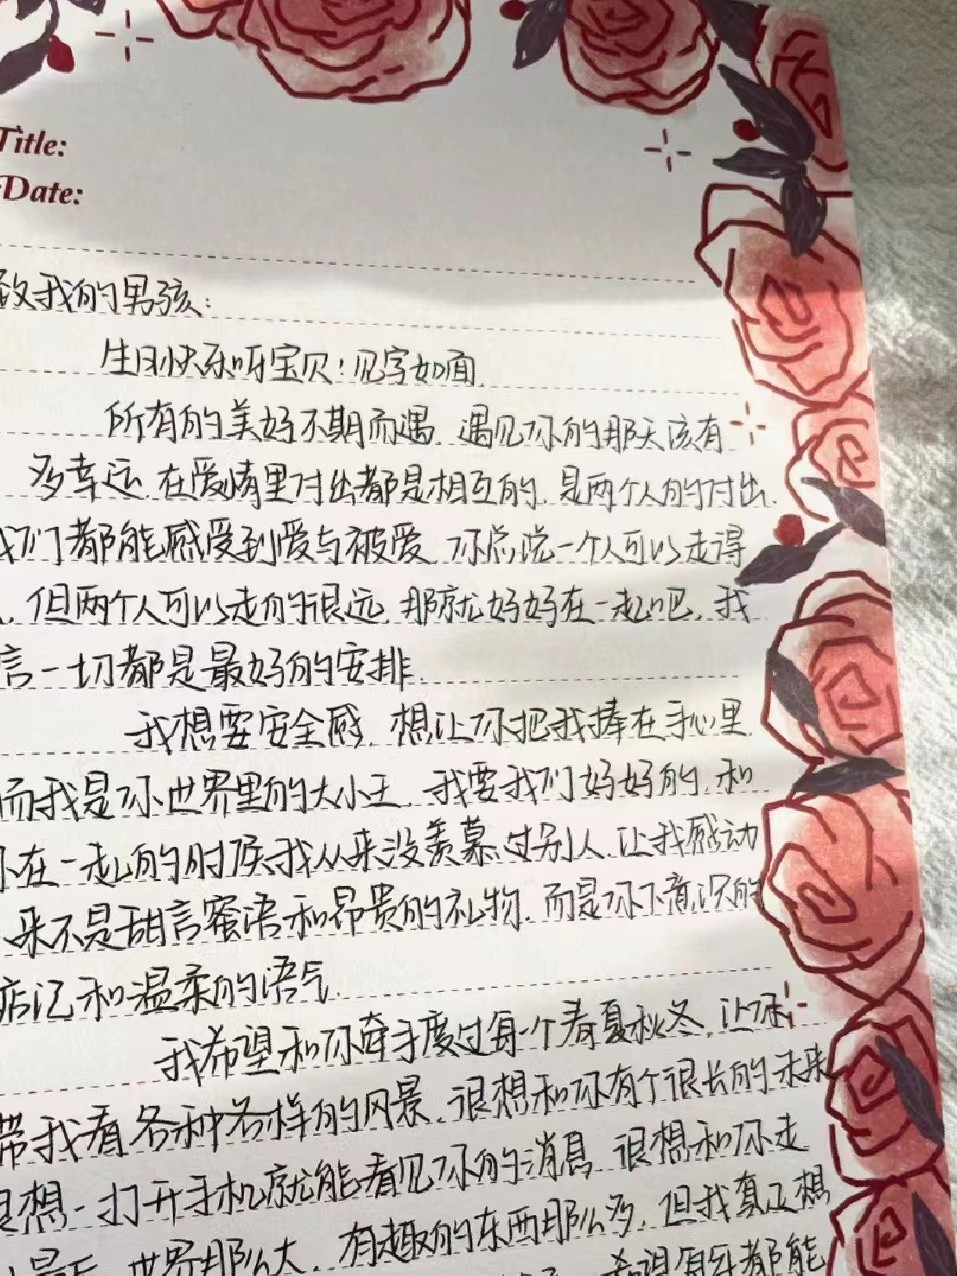 Title:
Date:
致我的男孩:
生日快乐呀宝贝!见字如面.
所有的美好不期而遇.遇见你的那天该有
多幸运.在爱情里付出都是相互的.是两个人的付出.
我们都能感受到爱与被爱.你总说一个人可以走得
.但两个人可以走的很远.那就好好在一起吧.我
言一切都是最好的安排.
我想要安全感.想让你把我捧在手心里.
而我是你世界里的大小王.我要我们好好的.和
你在一起的时候我从来没羡慕过别人.让我感动
来不是甜言蜜语和昂贵的礼物.而是你下意识的
惦记和温柔的语气.
我希望和你牵手度过每一个春夏秋冬.让你
带我看各种各样的风景.很想和你有个很长的未来
很想一打开手机就能看见你的消息.很想和你走
最后.世界那么大.有趣的东西那么多.但我真正想
希望每年都能